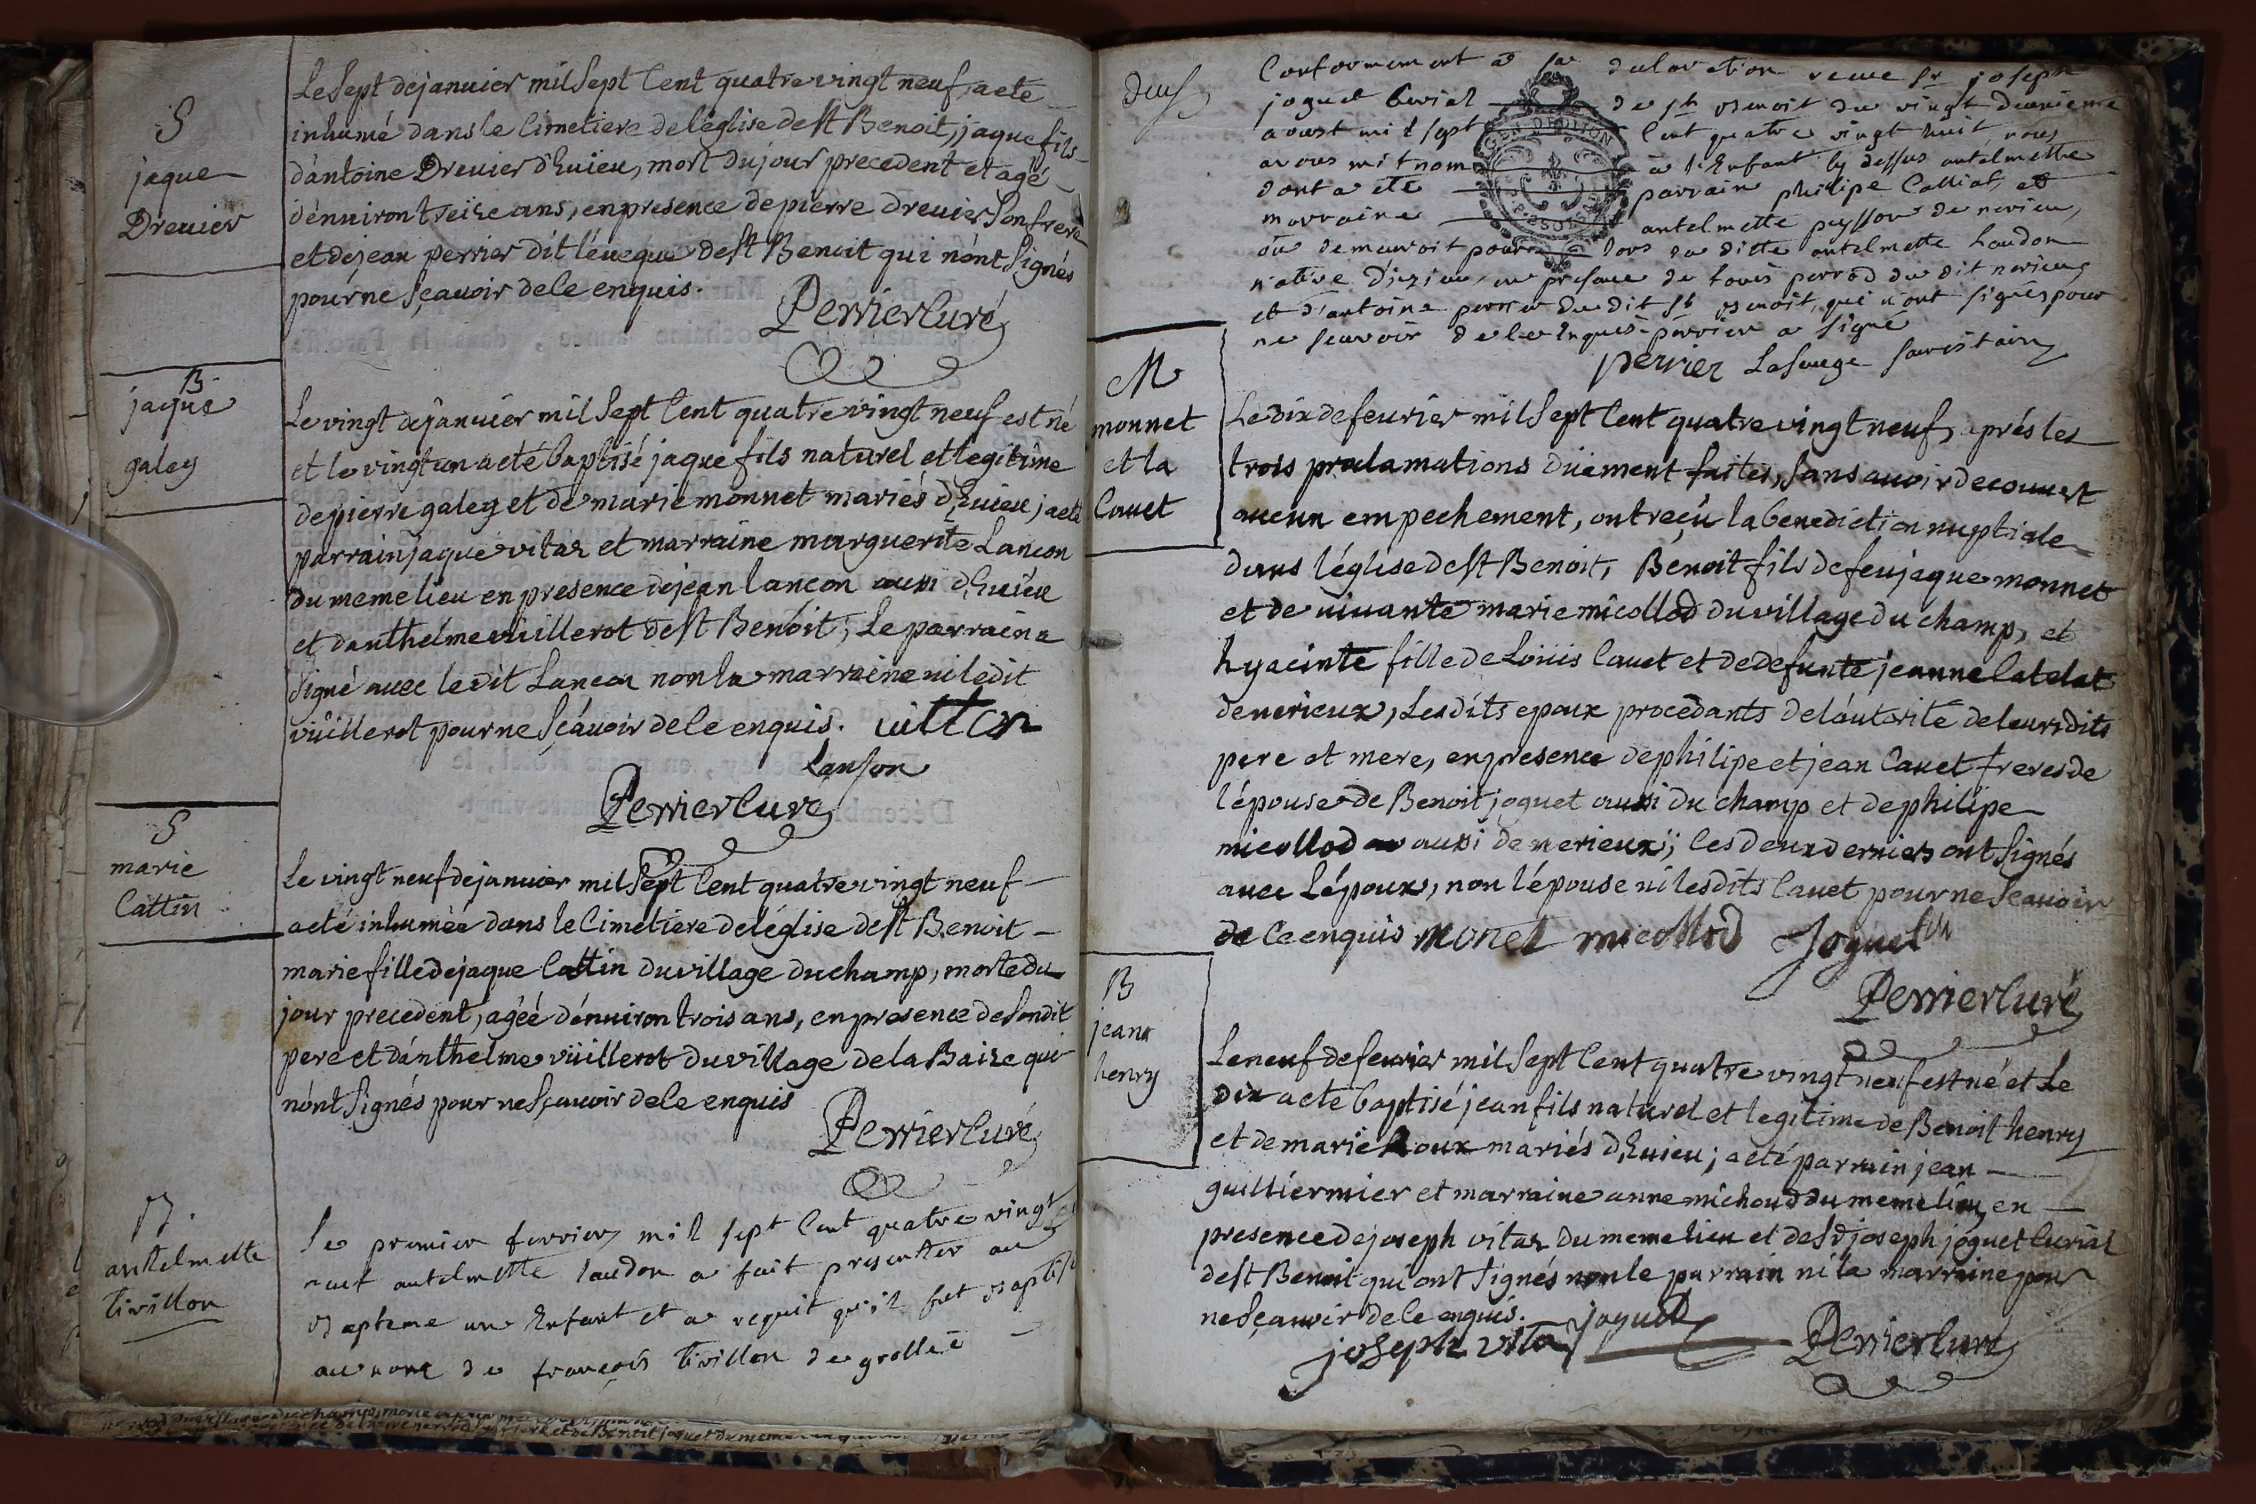 S
jaque
Dreuier
Le Sept de januier mil Sept Cent quatre vingt neuf, a eté
inhumé dans le Cimetiere de léglise de st Benoit, jaque fils
d'antoine Dreuier d'Euieu, mort du jour precedent et agé
d'énuiron treize ans, en presence de pierre dreuier Son frere
et de jean perrier dit léueque de st Benoit qui n'ont Signés
pour ne Sçauoir de ce enquis.
Perrier Curé
B.
jaque
galey
Le vingt de januier mil Sept Cent quatre vingt neuf est né
et le vingt un a eté baptisé jaque fils naturel et legitime
de pierre galey et de marie monnet mariés d'Euieu; a eté
parrain jaque vitaz et marraine marguerite Lancon
du meme lieu en presence de jean lancon aussi d'Euieu
et danthelme vüillerot de st Benoit; Le parrain a
Signé auec le dit Lancon non la marraine ni le dit
vüillerot pour ne Sçauoir de ce enquis. uitton
Lanson
Perrier Curé
S
marie
Cattin
Le vingt neuf de januier mil Sept Cent quatre vingt neuf
a eté inhumée dans le Cimetiere de léglise de st Benoit
marie fille de jaque Cattin du village du champ, morte du
jour precedent, agée d'énuiron trois ans, en presence de Son dit
pere et d'anthelme vüillerot du village de la Baize qui
n'ont Signés pour ne Sçauoir de ce enquis
Perrier Curé
B.
antelmette
tivillon
Le premier fevrier mil sept Cent quatre vingt
neuf antelmette laudon a fait presenter au
Bapteme un Enfant et a requit qu'il fut Baptisé
au nom de françois tivillon de grollée
Conformement a sa declaration recue Sr joseph
joguet Curial de st Benoit du vingt deuxieme
aoust mil sept Cent quatre vingt huit nous
avons mit nom a l'Enfant cy dessus antelmette
dont a été parrain philipe Calliat, et
marraine antelmette peysson de nerieu,
ou demeuroit pour lors la ditte antelmette laudon
native d'izieu, en presence de louis perrod du dit nerieu
et d'antoine perrier du dit st Benoit, qui n'ont signés pour
ne scavoir de ce Enquis perrier a signé
perrier Lasauge sacristain
M
monnet
et la
Cauet
Le dix de feurier mil Sept Cent quatre vingt neuf, aprés les
trois proclamations düement faites, Sans auoir decouuert
aucun empechement, ont reçu la benediction nuptiale
dans léglise de st Benoit, Benoit fils de feu jaque monnet
et de viuante marie micollod du village du champ, et
hyacinte fille de Loüis Cauet et de defunte jeanne Catelat
de nerieux, Les dits epoux procedants de l'autorité de leurs dits
pere et mere, en presence de philipe et jean Cauet freres de
l'épouse de Benoit joguet aussi du champ et de philipe
micollod aussi de nerieux; les deux derniers ont Signés
auec L'époux, non l'épouse ni les dits Cauet pour ne Scauoir
de ce enquis monet micollod Joguet
Perrier Curé
B
jean
henry
Le neuf de feurier mil Sept Cent quatre vingt neuf est né et Le
dix a eté baptisé jean fils naturel et legitime de Benoit henry
et de marie Roux mariés d'Euieu; a eté parrain jean
guilliermier et marraine anne michoud du meme lieu, en
presence de joseph vitaz du meme lieu et de Sr joseph joguet Curial
de st Benoit qui ont Signés non le parrain ni la marraine pour
ne Sçauoir de ce enquis.
joseph vita joguet Perrier Curé